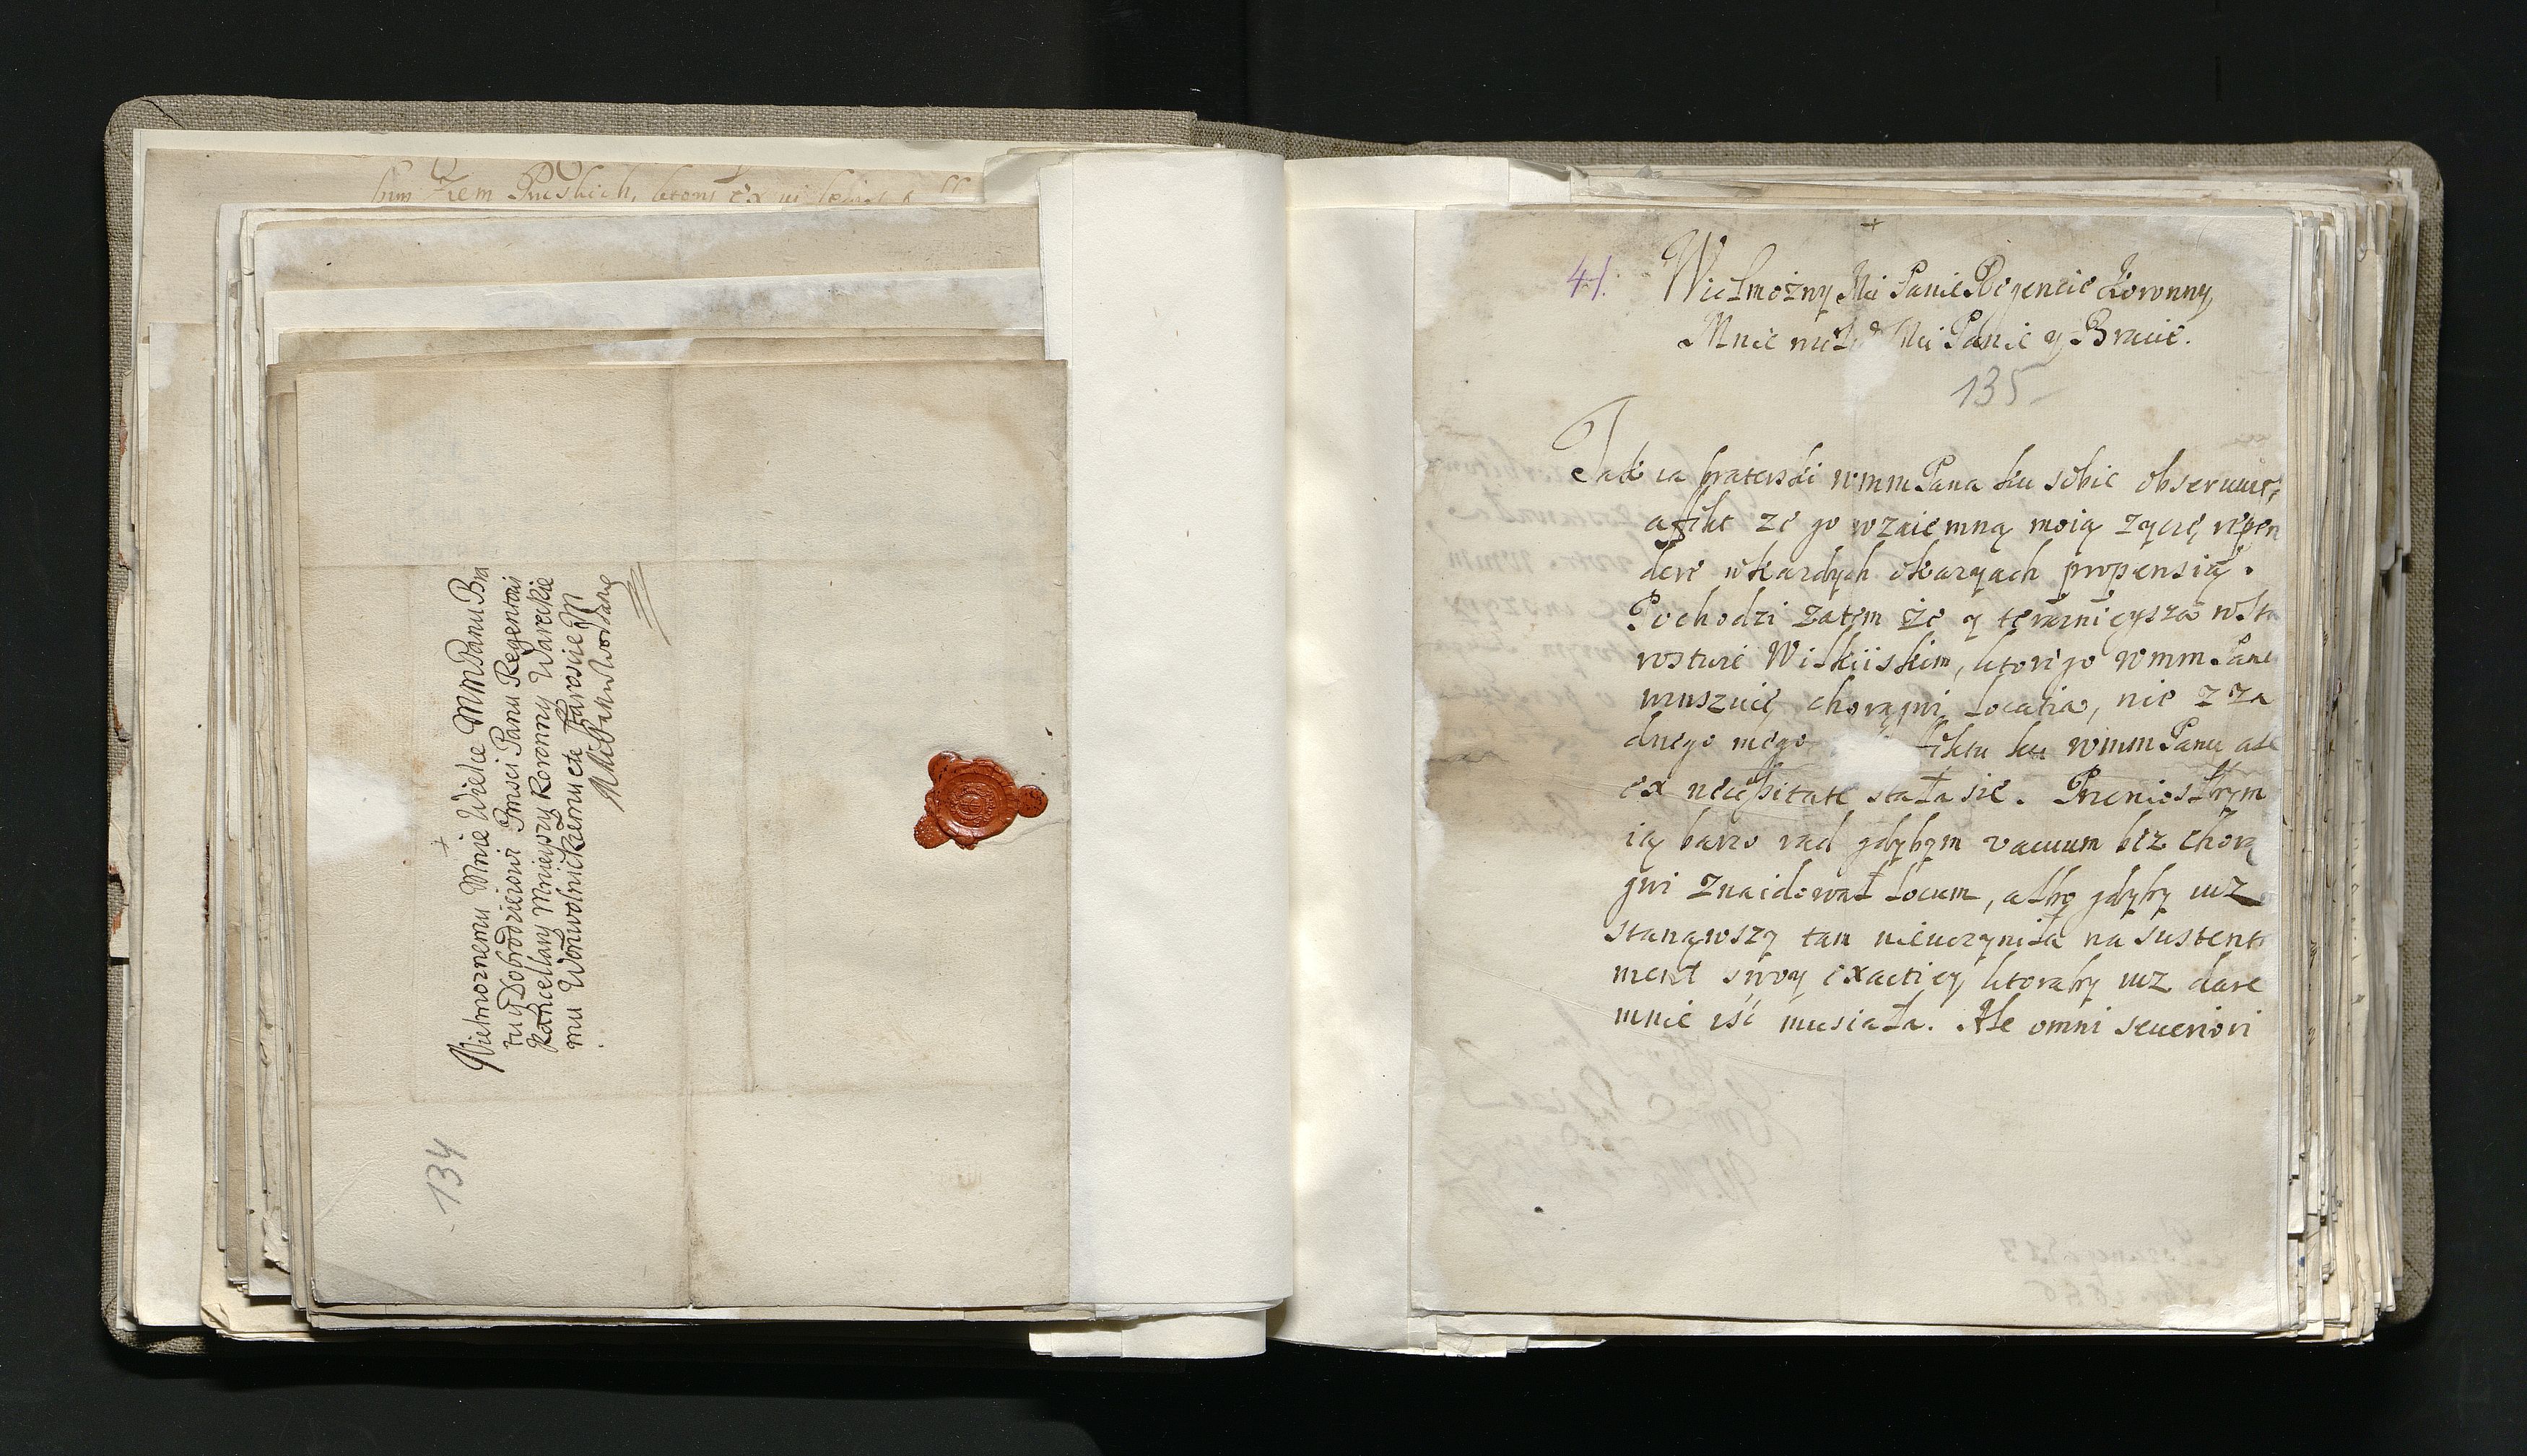 Wielmoznemu Mnie Wielce MMPanu Bra
tu y Dobrodzieiowi Jmsci Panu Regentowi
Kancellary Mnieyszy Koronny Wareckie
mu Woźwolnickiemu etc Staroscie M
134
41.
Wielmożny Mci Panie Regencie Koronny,
Mnie Mci Panie y Bracie.
135
Jak ia braterski wmmPana ku sobie obserwuię,
affekt ze go wzaiemną moią zyczę repen
dere w kazdych okazyach propensią.
Pochodzi zatym że y teraznieysza w Sta
rostwie Wilkiiskim, ktorego wmmPane
wruszcie chorągwi locatia, nie z za
dnego mego ku wmmPanu ale
ex necessitate stała sie. Przeniosłbym
ią barzo rad gdybym vacuum bez chorą
gwi znaidował locum, albo gdyby iuz
stanąwszy tam nieuczyniła na sustent
ment swoy exactiey ktoraby iuz dare
mnie iść musiała. Ale omni seueriori